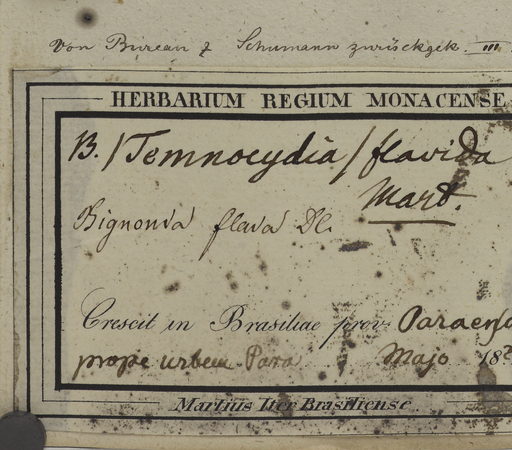 Von Bureau & Schumann zurückgek. III
HERBARIUM REGIUM MONACENSE
B. / Temnocydia / flavida
Mart.
Bignonia flava DC.
Crescit in Brasiliae prov. Paraensi
prope urbem Para Majo 182
Martius Iter Brasiliense